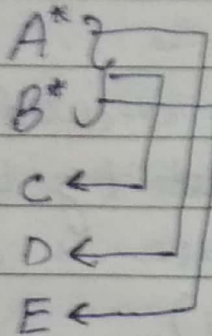 A*
B*
C
D
E